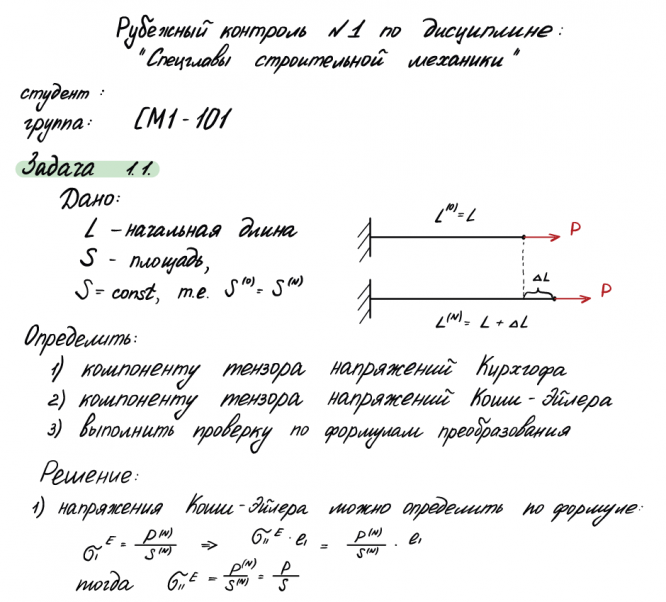 Рубежный контроль №1 по дисциплине:
"Спецглавы строительной механики"
студент :
группа: СМ1-101
Задача 1.1.
Дано:
L - начальная длина
S - площадь,
S = const, т.е. S⁽⁰⁾ = S⁽ᴺ⁾
L⁽⁰⁾ = L
P
ΔL
P
L⁽ᴺ⁾ = L + ΔL
Определить:
1) компоненту тензора напряжений Кирхгофа
2) компоненту тензора напряжений Коши-Эйлера
3) выполнить проверку по формулам преобразования
Решение:
1) напряжения Коши-Эйлера можно определить по формуле:
σ₁ᴱ = P⁽ᴺ⁾/S⁽ᴺ⁾ ⇒ σ₁₁ᴱ · e₁ = P⁽ᴺ⁾/S⁽ᴺ⁾ · e₁
тогда σ₁₁ᴱ = P⁽ᴺ⁾/S⁽ᴺ⁾ = P/S